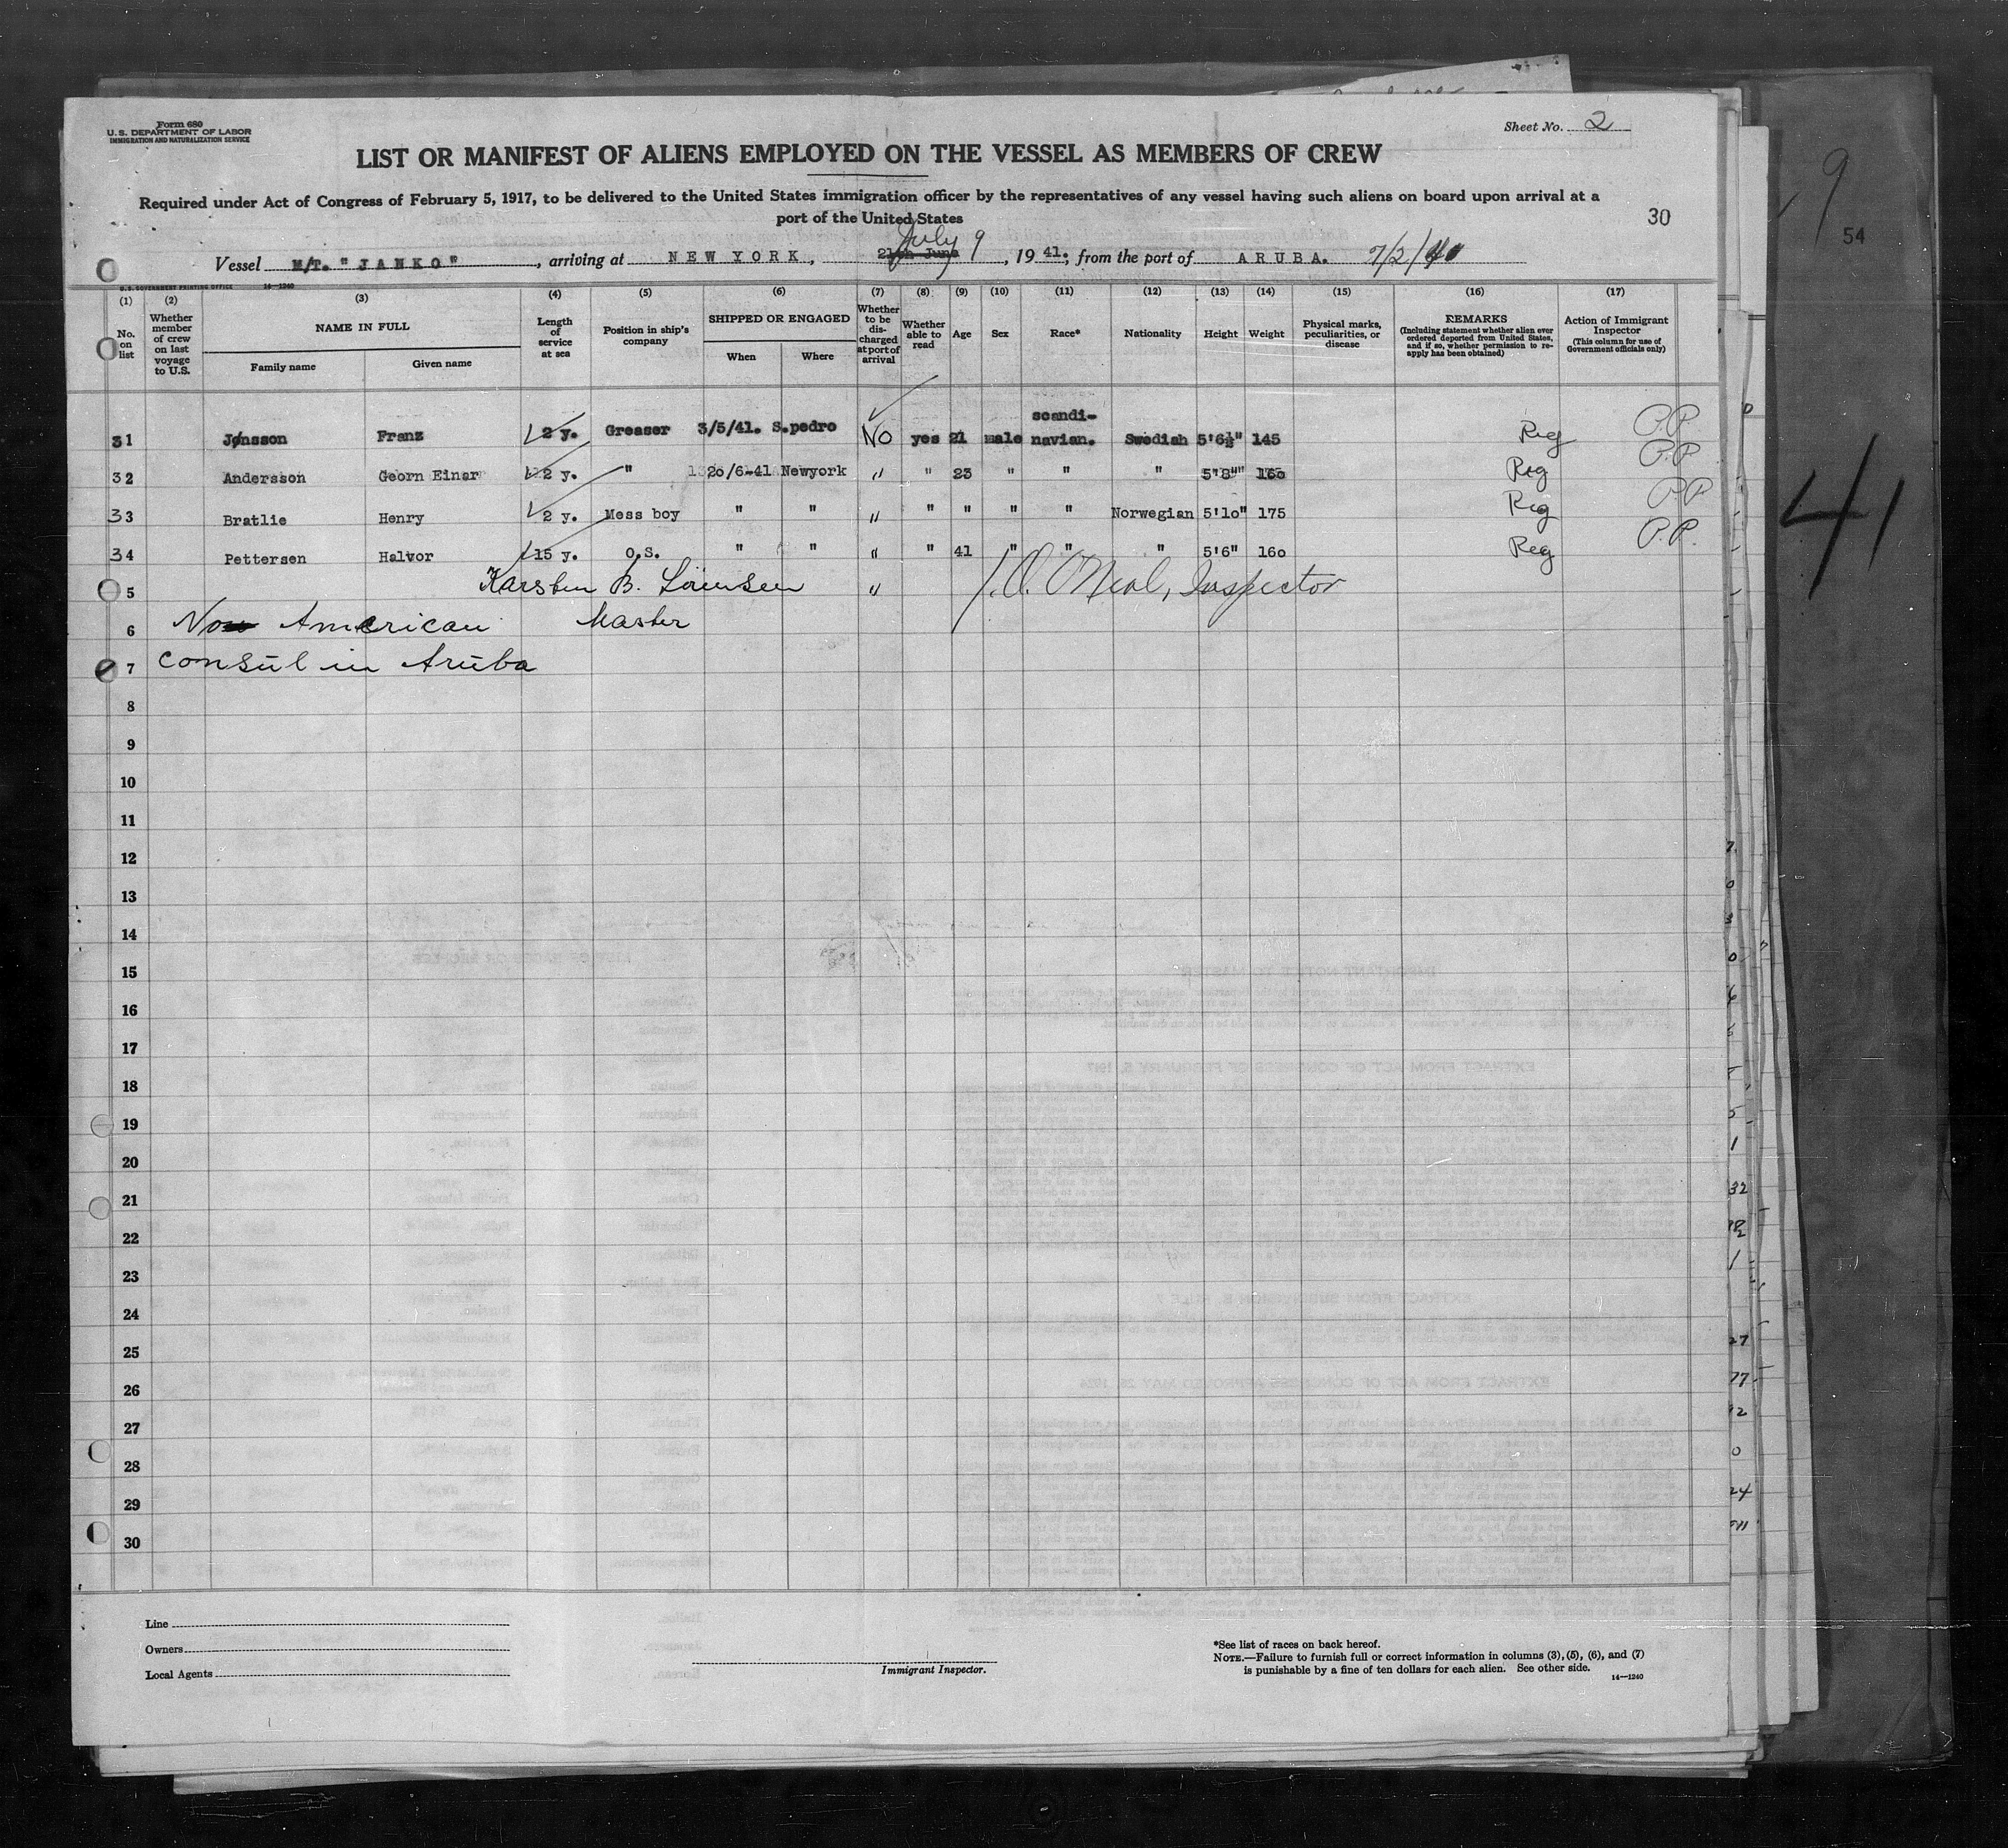 Form 680
U.S. DEPARTMENT OF LABOR
IMMIGRATION AND NATURALIZATION SERVICE
Sheet No. 2
LIST OR MANIFEST OF ALIENS EMPLOYED ON THE VESSEL AS MEMBERS OF CREW
Required under Act of Congress of February 5, 1917, to be delivered to the United States immigration officer by the representatives of any vessel having such aliens on board upon arrival at a
port of the United States
30
9
54
July 9
Vessel M/T. "JANKO", arriving at NEW YORK, June, 1941, from the port of ARUBA. 7/2/41
U.S. GOVERNMENT PRINTING OFFICE 14—1240
(1) (2) (3) (4) (5) (6) (7) (8) (9) (10) (11) (12) (13) (14) (15) (16) (17)
No. on list
Whether member of crew on last voyage to U.S.
NAME IN FULL
Family name Given name
Length of service at sea
Position in ship's company
SHIPPED OR ENGAGED
When Where
Whether to be discharged at port of arrival
Whether able to read
Age Sex Race* Nationality Height Weight
Physical marks, peculiarities, or disease
REMARKS
(Including statement whether alien ever ordered deported from United States, and if so, whether permission to reapply has been obtained)
Action of Immigrant Inspector
(This column for use of Government officials only)
31 Jønsson Franz 2 y. Greaser 3/5/41. S.pedro No yes 21 male scandi-navian. Swedish 5'6½" 145 Reg P.P
32 Andersson Georn Einar 2 y. " 20/6-41 Newyork " " 23 " " " 5'8" 160 Reg P.P
33 Bratlie Henry 2 y. Mess boy " " " " " " " Norwegian 5'10" 175 Reg P.P
34 Pettersen Halvor 15 y. O.S. " " " " 41 " " " 5'6" 160 Reg P.P.
41
5 Karsten B. " O'Neal, Inspector
6 No American Master
7 consul in Aruba
8
9
10
11
12
13
14
15
16
17
18
19
20
21
22
23
24
25
26
27
28
29
30
Line
Owners
Local Agents
Immigrant Inspector.
*See list of races on back hereof.
NOTE.—Failure to furnish full or correct information in columns (3), (5), (6), and (7)
is punishable by a fine of ten dollars for each alien. See other side.
14—1240